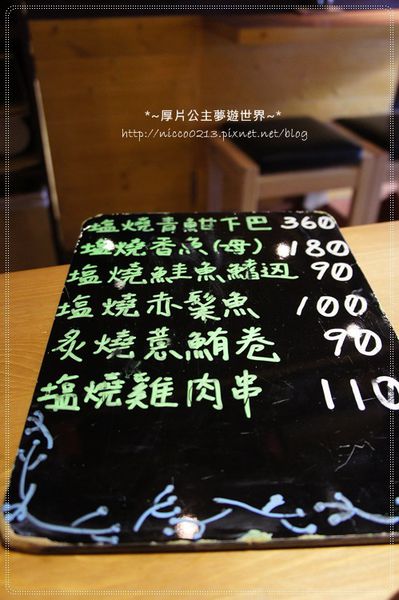 *~厚片公主夢遊世界~*
http://nicco0213.pixnet.net/blog
塩燒青魽下巴 360
塩燒香魚(母) 180
塩燒鮭魚鰭辺 90
塩燒赤鬃魚 100
炙燒蔥鮪卷 90
塩燒雞肉串 110